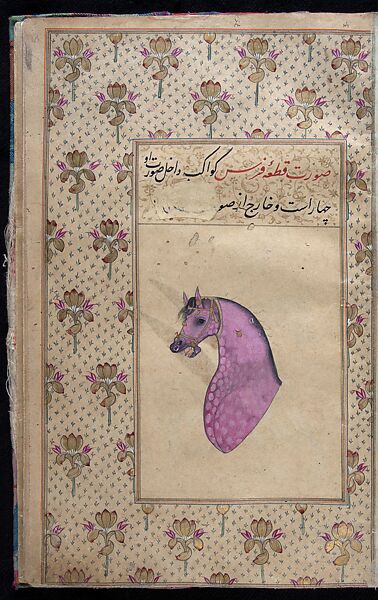 صورت قطعهٔ فرس کواکب داخل صورت او
چهار است و خارج از صو